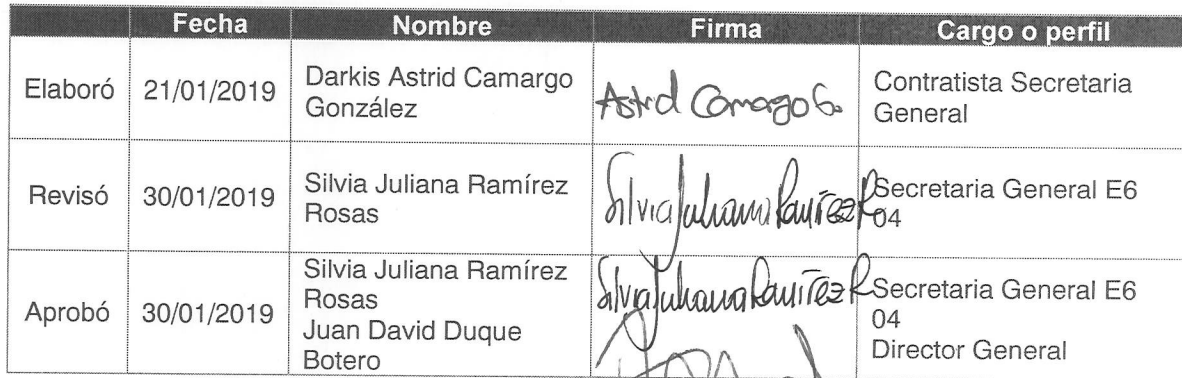 Fecha Nombre Firma Cargo o perfil
Elaboró 21/01/2019 Darkis Astrid Camargo González Astrid Camargo G. Contratista Secretaria General
Revisó 30/01/2019 Silvia Juliana Ramírez Rosas Silvia Juliana Ramírez R Secretaria General E6 04
Aprobó 30/01/2019 Silvia Juliana Ramírez Rosas Juan David Duque Botero Silvia Juliana Ramírez R Secretaria General E6 04 Director General